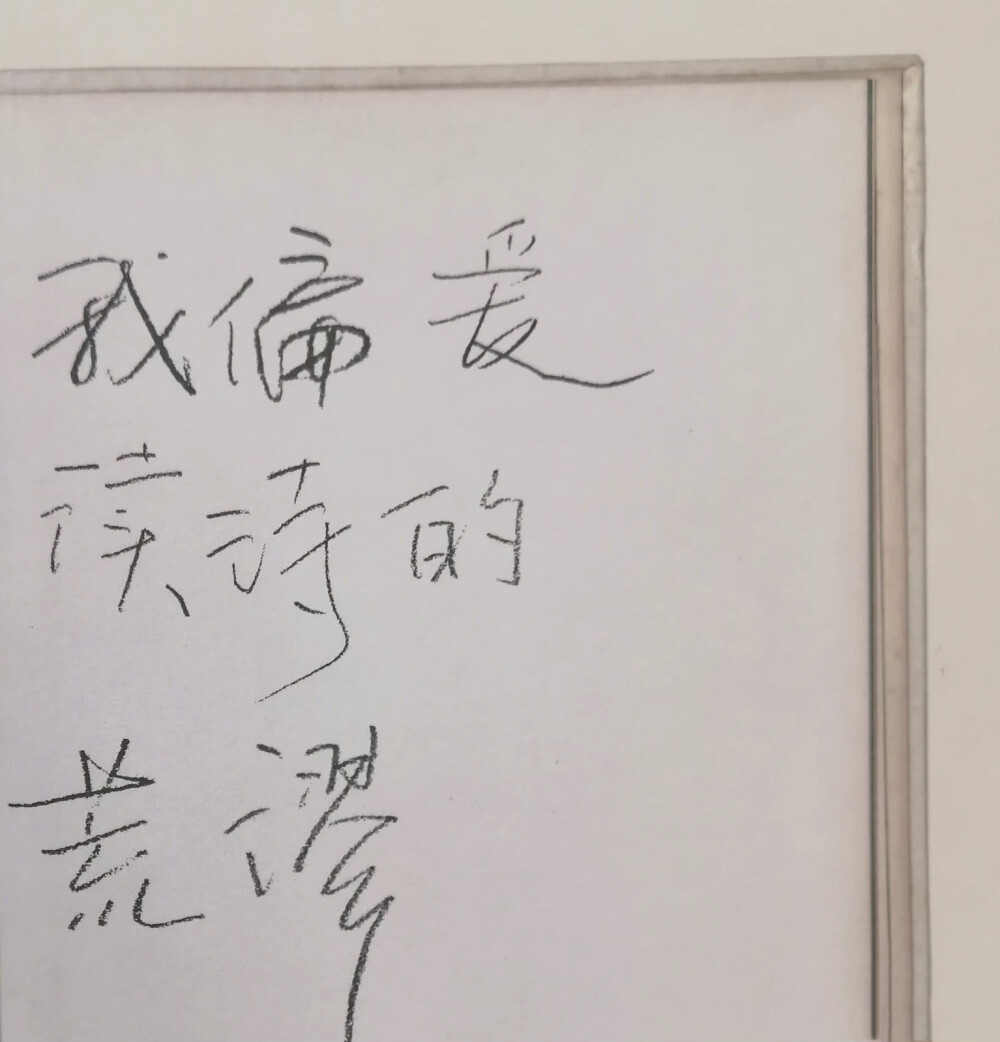 我偏爱
读诗的
荒谬